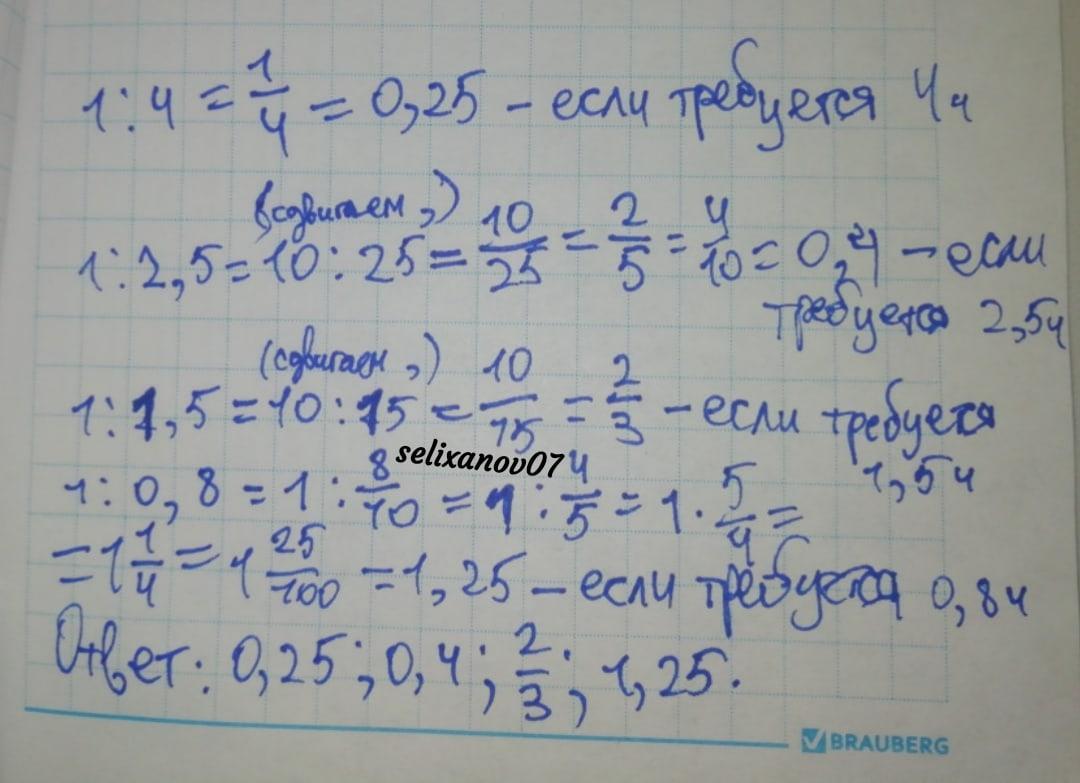 1 : 4 = 1/4 = 0,25 – если требуется 4ч
(сдвигаем ,)
1 : 2,5 = 10 : 25 = 10/25 = 2/5 = 4/10 = 0,4 – если
требуется 2,5ч
(сдвигаем ,)
1 : 1,5 = 10 : 15 = 10/15 = 2/3 – если требуется
1,5ч
selixanov07
1 : 0,8 = 1 : 8/10 = 1 : 4/5 = 1 · 5/4 =
= 1 1/4 = 1 25/100 = 1,25 – если требуется 0,8ч
Ответ: 0,25; 0,4; 2/3; 1,25.
BRAUBERG